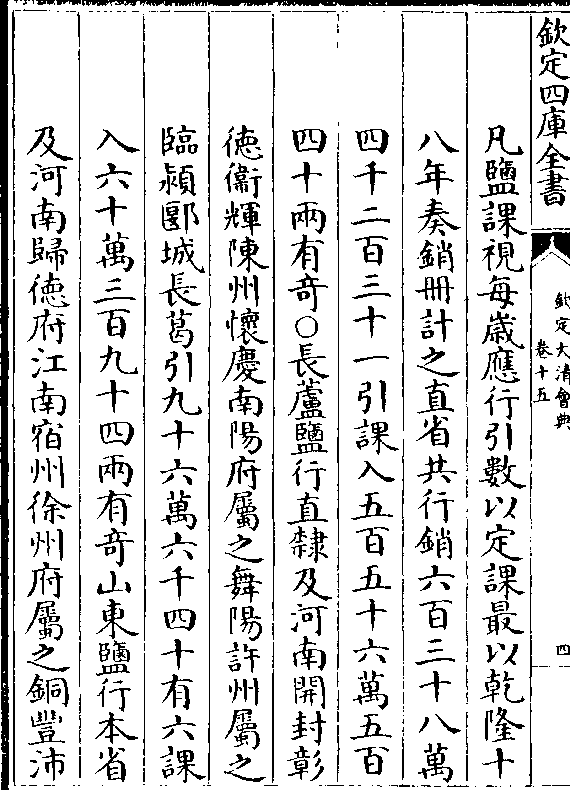 欽定四庫全書
欽定大清會典
卷十五
四
凡鹽課視每歲應行引數以定課最以乾隆十
八年奏銷冊計之直省共行銷六百三十八萬
四千二百三十一引課入五百五十六萬五百
四十兩有奇○長蘆鹽行直隸及河南開封彰
德衞輝陳州懷慶南陽府屬之舞陽許州屬之
臨潁郾城長葛引九十六萬六千四十有六課
入六十萬三百九十四兩有奇山東鹽行本省
及河南歸德府江南宿州徐州府屬之銅豐沛